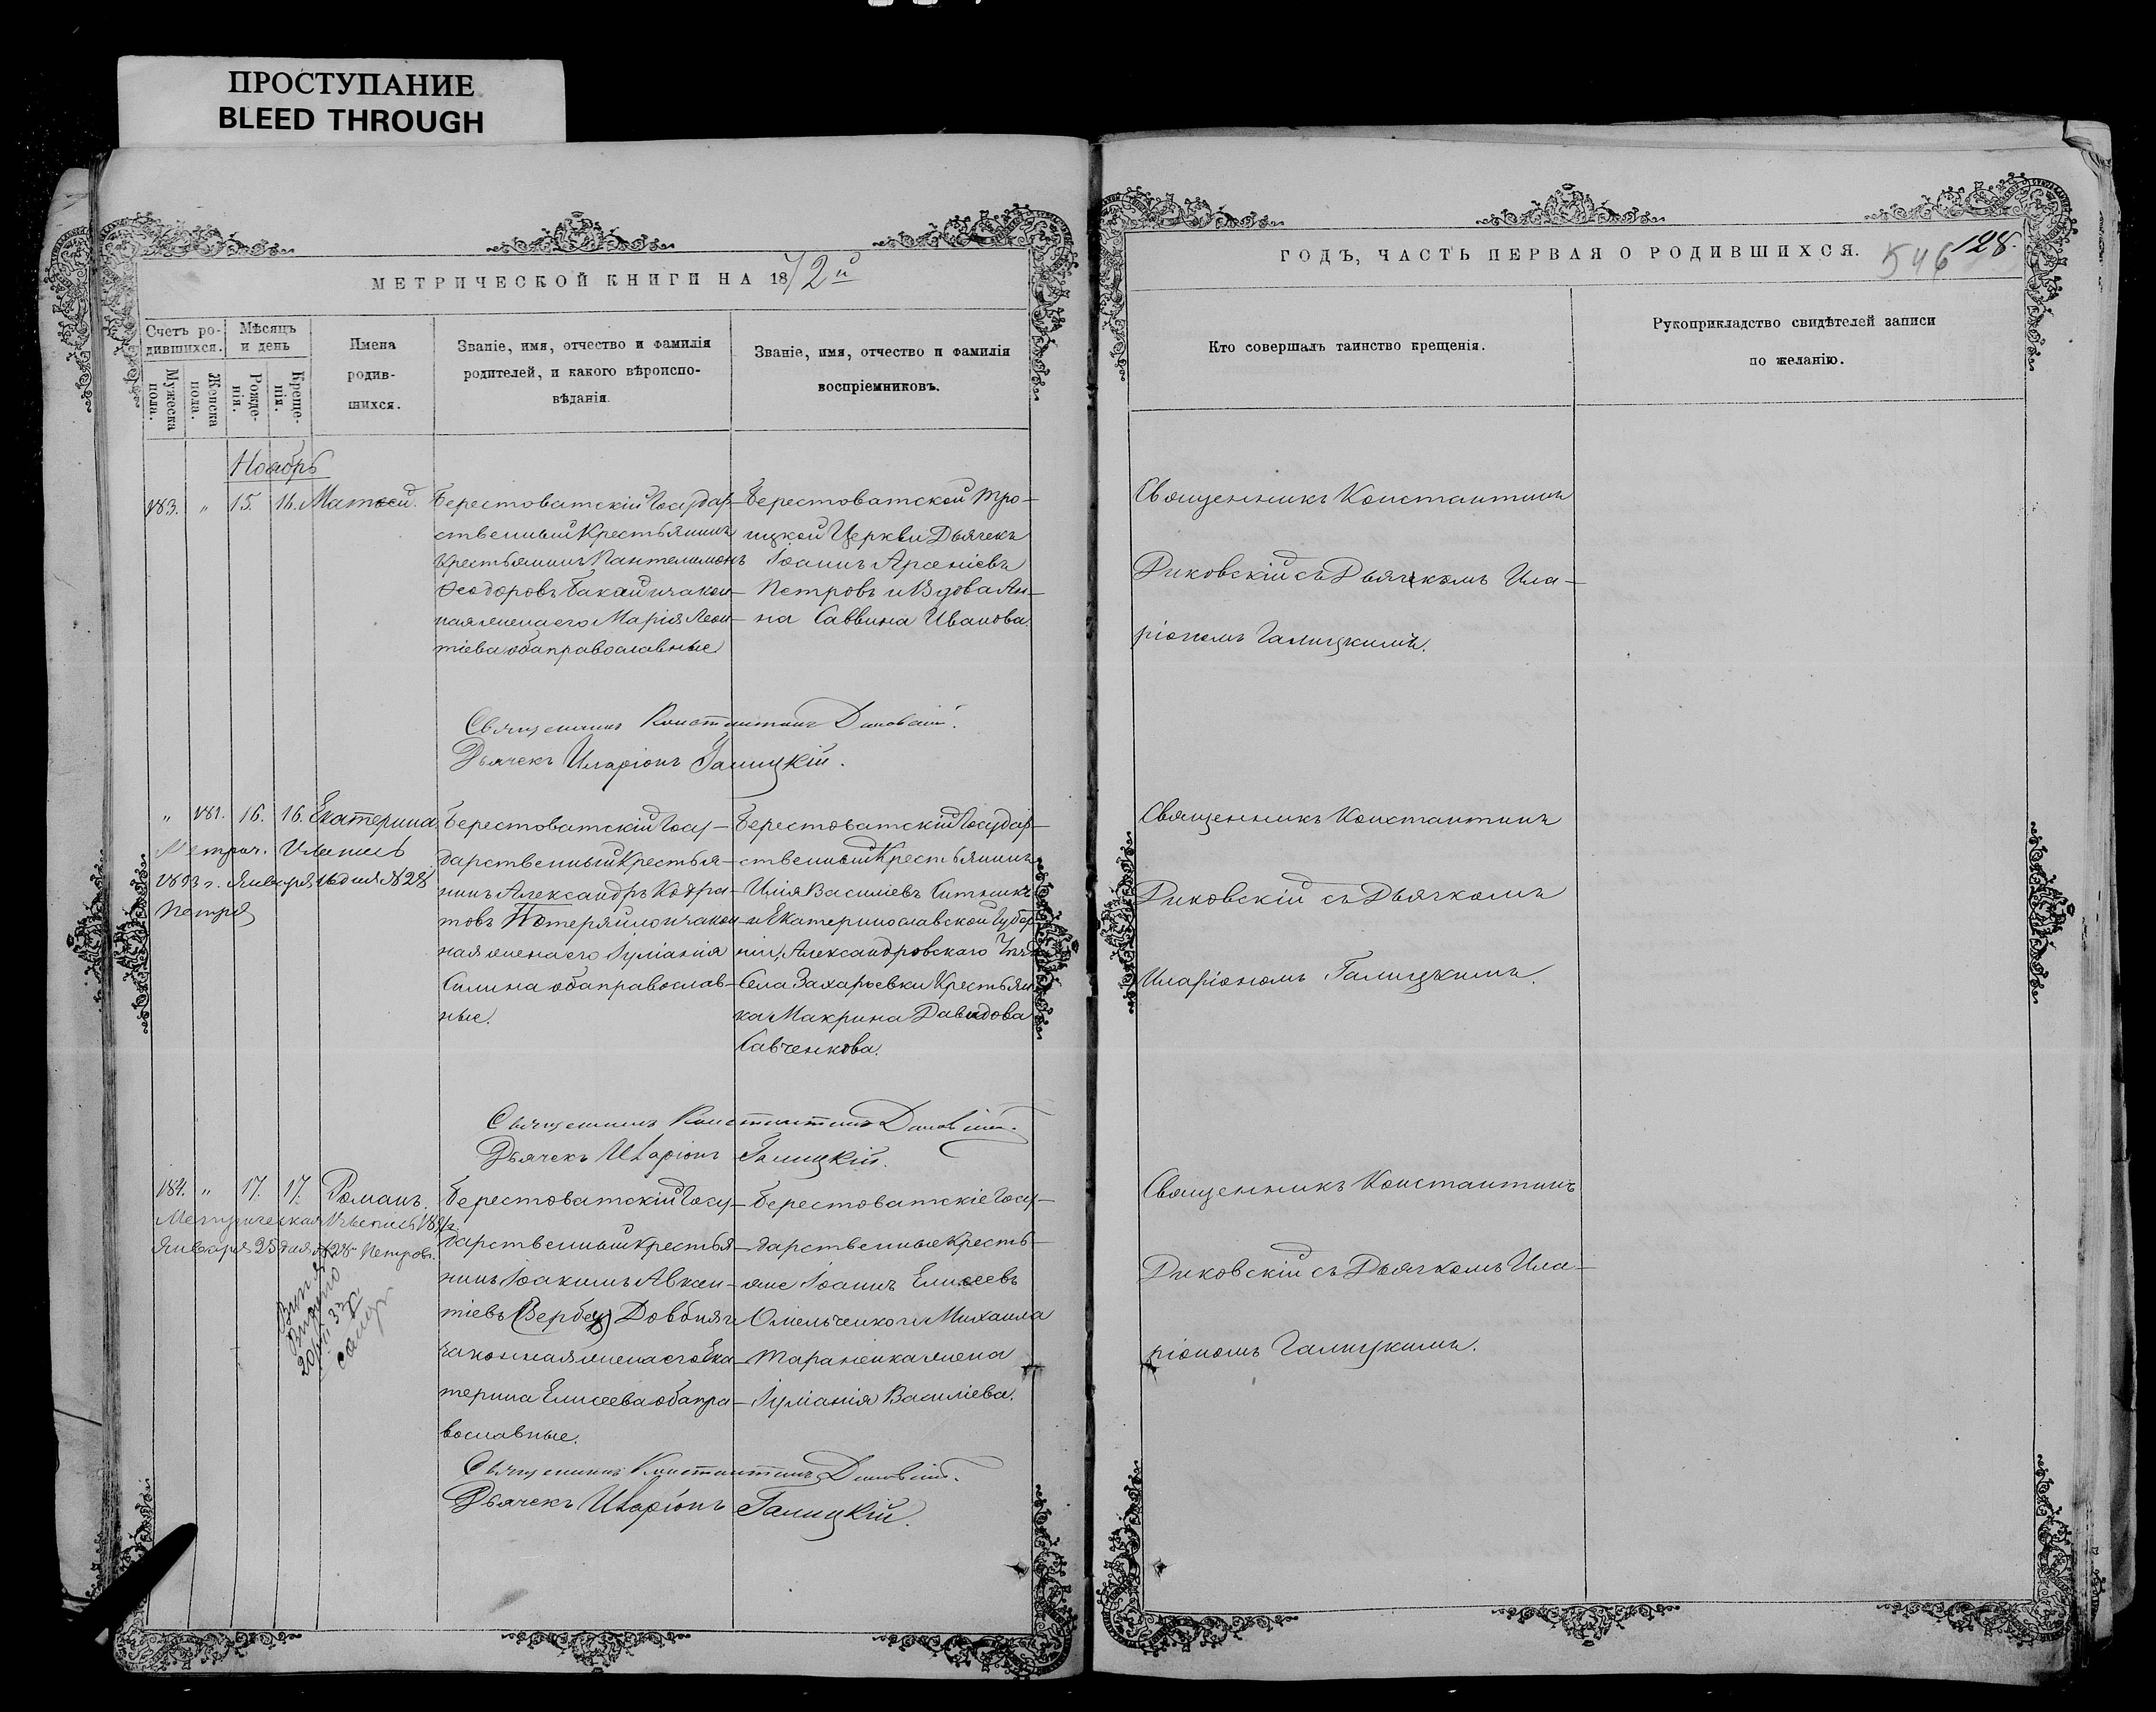 ПРОСТУПАНИЕ
BLEED THROUGH
МЕТРИЧЕСКОЙ КНИГИ НА 1872й
Счетъ ро-
дившихся.
Мужеска
пола.
Женска
пола.
Мѣсяцъ
и день
Рожде-
нія.
Креще-
нія.
Имена
родив-
шихся.
Званіе, имя, отчество и фамилія
родителей, и какого вѣроиспо-
вѣданія.
Званіе, имя, отчество и фамилія
воспріемниковъ.
Ноябрь
183. " 15. 16. Матѳей.
Берестоватскій Государ-
ственный Крестьянинъ
Крестьянинъ Пантелимонъ
Ѳеодоровъ Бакай и закон-
ная жена его Марія Леон-
тіева оба православные
Берестоватской Тро-
ицкой Церкви Дьячекъ
Іоаннъ Арсеніевъ
Петровъ и Вдова Ан-
на Саввина Иванова.
Священникъ Константинъ Диковскій.
Дьячекъ Иларіонъ Галицкій.
" 181. 16. 16. Екатерина
Метрич. Выпись
1893 г. Января дня № 28
Петровъ
Берестоватскій Госу-
дарственный Крестья-
нинъ Александръ Кодра-
товъ Потеряйло и закон-
ная жена его Іуліанія
Силина оба православ-
ные.
Берестоватскій Государ-
ственный Крестьянинъ
Илія Василіевъ Ситникъ
и Екатеринославской Губер
ніи, Александровскаго Уѣзд
Села Захарьевки Крестьян
ка Макрина Давидова
Савченкова.
Священникъ Константинъ Диковскій.
Дьячекъ Иларіонъ Галицкій.
184. " 17. 17. Романъ.
Метрическая Выпись
Января 25 дня № 28 Петровъ.
Берестоватскій Госу-
дарственный Крестья-
нинъ Іоакимъ Авксен-
тіевъ (Вербец) Довбня и
законная жена его Ека-
терина Елисеева оба пра-
вославные.
Берестоватскіе Госу-
дарственные Кресть-
яне Іоаннъ Елисеевъ
Омельченко и Михаила
Тараненка жена
Іуліанія Василіева.
Священникъ Константинъ Диковскій.
Дьячекъ Иларіонъ Галицкій.
ГОДЪ, ЧАСТЬ ПЕРВАЯ О РОДИВШИХСЯ.
546
128.
Кто совершалъ таинство крещенія.
Рукоприкладство свидѣтелей записи
по желанію.
Священникъ Константинъ
Диковскій съ Дьячкомъ Ила-
ріономъ Галицкимъ.
Священникъ Константинъ
Диковскій съ Дьячкомъ
Иларіономъ Галицкимъ.
Священникъ Константинъ
Диковскій съ Дьячкомъ Ила-
ріономъ Галицкимъ.